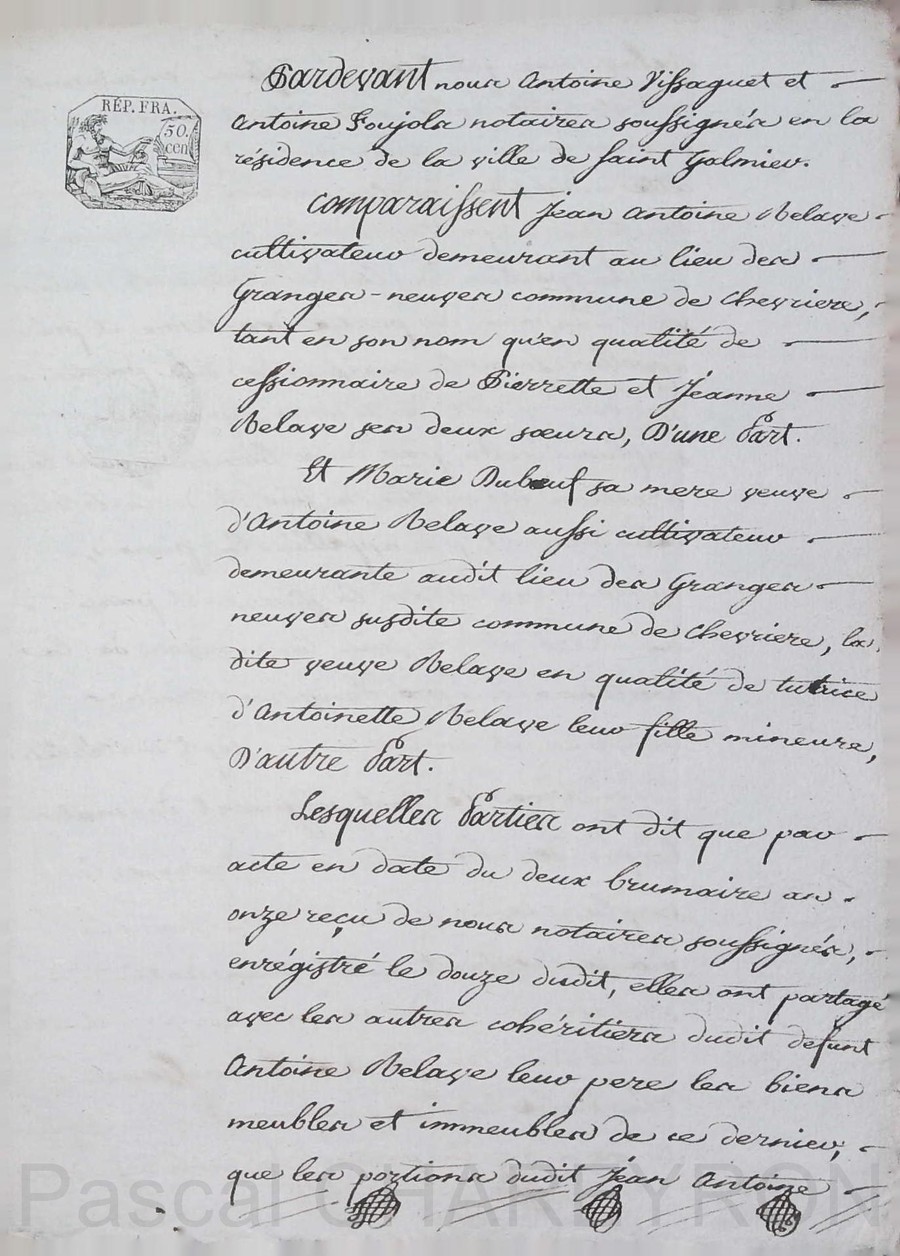 RÉP. FRA.
50.
cen
Pardevant nous Antoine Vissaguet et
Antoine Poujols notaires soussignés en la
résidence de la ville de Saint Galmier.
Comparaissent Jean Antoine Relave
cultivateur demeurant au lieu des
Granges-neuves commune de Chevriere,
tant en son nom qu'en qualité de
cessionnaire de Pierrette et Jeanne
Relave ses deux sœurs, D'une Part.
Et Marie Dubœuf sa mere veuve
d'Antoine Relave aussi cultivateur
demeurante audit lieu des Granges
neuves susdite commune de Chevriere, la
dite veuve Relave en qualité de tutrice
d'Antoinette Relave leur fille mineure,
D'autre Part.
Lesquelles Parties ont dit que par
acte en date du deux brumaire an
onze reçu de nous notaires soussignés,
enrégistré le douze dudit, elles ont partagé
avec les autres cohéritiers dudit defunt
Antoine Relave leur pere les biens
meubles et immeubles de ce dernier,
que les portions dudit Jean Antoine
Pascal CHAREYRON